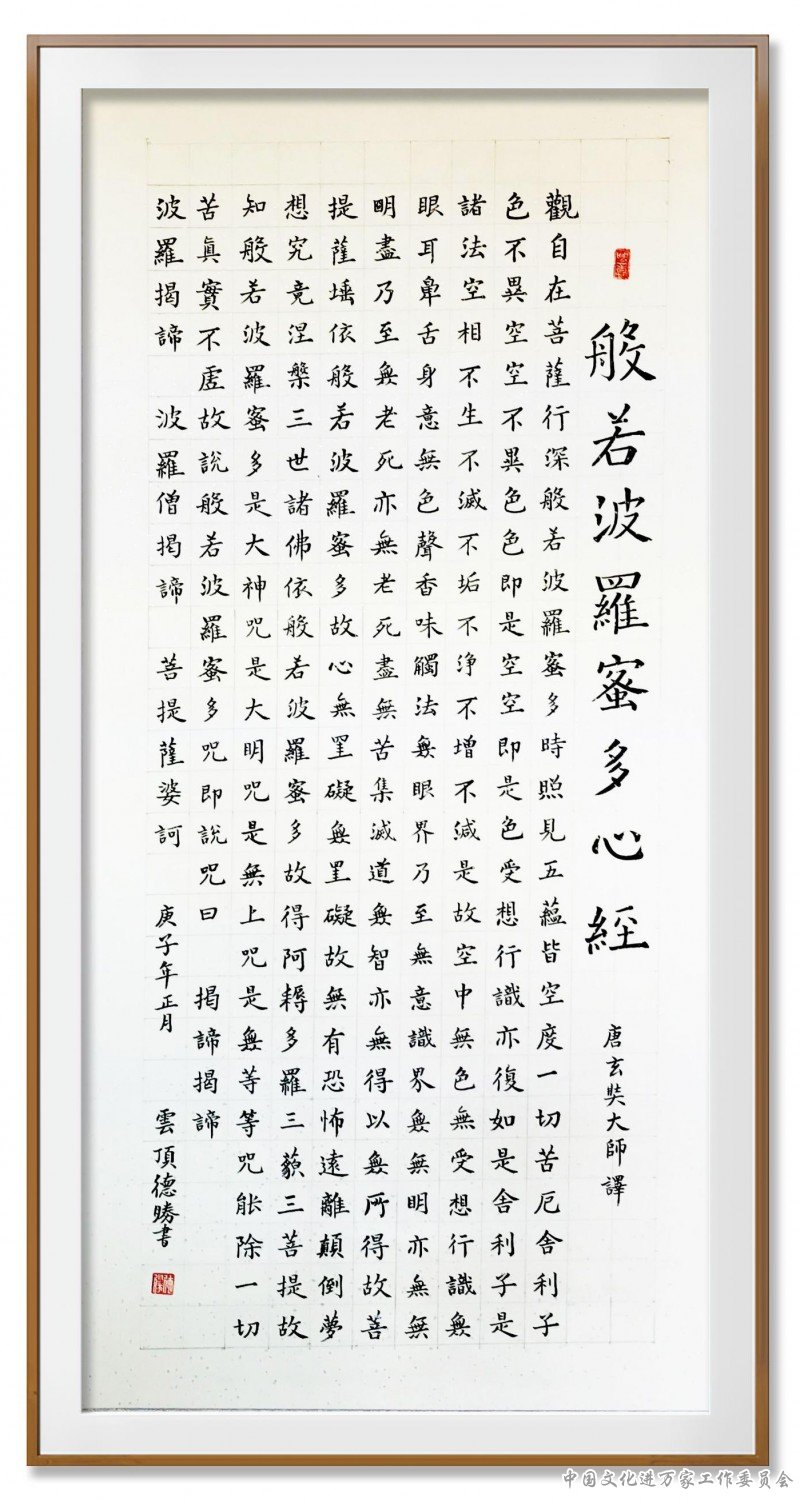 般若波羅蜜多心經 唐玄奘大師譯
觀自在菩薩行深般若波羅蜜多時照見五蘊皆空度一切苦厄舍利子
色不異空空不異色色即是空空即是色受想行識亦復如是舍利子是
諸法空相不生不滅不垢不淨不增不減是故空中無色無受想行識無
眼耳鼻舌身意無色聲香味觸法無眼界乃至無意識界無無明亦無無
明盡乃至無老死亦無老死盡無苦集滅道無智亦無得以無所得故菩
提薩埵依般若波羅蜜多故心無罣礙無罣礙故無有恐怖遠離顛倒夢
想究竟涅槃三世諸佛依般若波羅蜜多故得阿耨多羅三藐三菩提故
知般若波羅蜜多是大神咒是大明咒是無上咒是無等等咒能除一切
苦真實不虛故說般若波羅蜜多咒即說咒曰 揭諦揭諦
波羅揭諦 波羅僧揭諦 菩提薩婆訶 庚子年正月 雲頂德勝書
中国文化进万家工作委员会